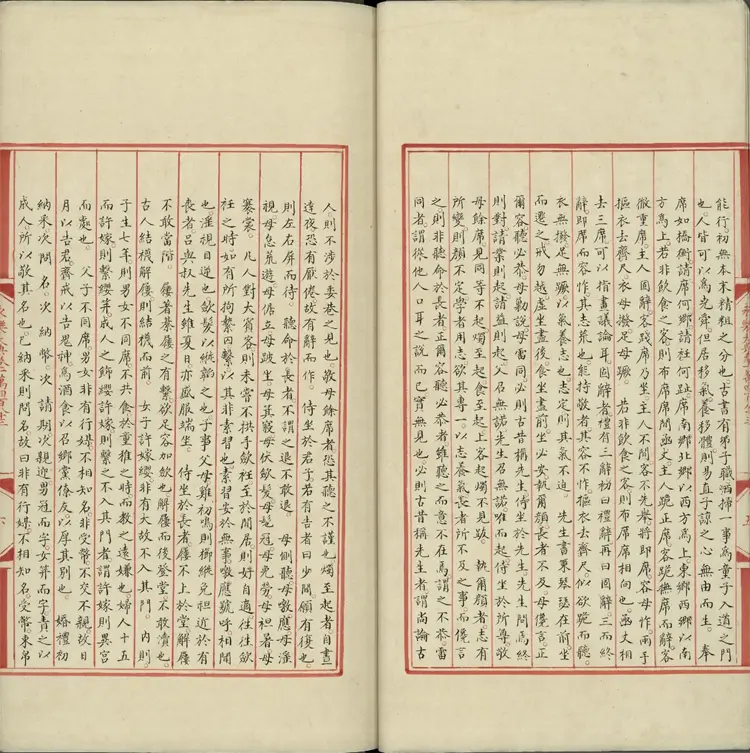 能行初無本末精粗之分也。古書有弟子職。洒掃一事。為童子入道之門
也。人皆可以為堯舜。但居移氣養移體。則易直子諒之心無由而生。 奉
席如橋衡。請席何鄉。請衽何趾。席南鄉北鄉以西方為上。東鄉西鄉以南
方為上。若非飲食之客則布席。席間函丈。主人跪正席。客跪撫席而辭。客
徹重席。主人固辭。客踐席乃坐。主人不問。客不先舉。將即席。容毋怍。兩手
摳衣去齊尺。衣毋撥。足毋蹶。 若非飲食之客則布席。席相向也。函丈。相
去三席。可以指畫議論耳。固辭者。禮有三辭。初曰禮辭。再曰固辭。三而終
辭。即席而容怍。其志荒也。能持敬者。其容不怍。摳衣去齊尺。似欲跪而聽。
衣無撥足無蹶。以氣養志也。志定則其氣不。 先生書策琴瑟在前。坐
而遷之。戒勿越。虛坐盡後。食坐盡前。坐必安。執爾顏。長者不及。毋儳言。正
爾容。聽必恭。毋勦說。毋雷同。必則古昔。稱先生。侍坐於先生。先生問焉。終
則對。請業則起。請益則起。父召無諾。先生召無諾。唯而起。侍坐於所尊敬
毋餘席。見同等不起。燭至起。食至起。上客起。燭不見跋。 執爾顏者。志有
所變。則顏不定。學者用志。欲其專一。以志養氣。長者所不及之事。而儳言
之。則非聽命於長者。正爾容聽必恭者。雖聽之而意不在焉。謂之不恭。雷
同者。謂從他人口耳之說。而已實無見也。必則古昔稱先生者。謂尚論古
人。則不涉於委巷之見也。敬毋餘席者。恐其聽之不謹也。燭至起者。自晝
達夜。恐有厭倦。故有辭而作。 侍坐於君子。若有告者曰。少間。願有復也。
則左右屏而待。 聽命於長者。不謂之退。不敢退。 毋側聽。毋噭應。毋淫
視。毋怠荒。遊毋倨。立毋跛。坐毋箕。寢毋伏。歛髮毋髢。冠毋免。勞毋袒。暑毋
褰裳。 凡人對大賓客則未嘗不拱手歛衽。至於閒居則好自適。往往歛
衽之時。如有所拘繫。因繫以其非素習也。素習安於無事。噭應。號呼相聞
也。淫視。目逆也。歛髮以縰韜之也。子事父母。雞初鳴。則櫛縰。免袒。近於有
喪者。呂與叔先生雖夏日亦盛服端坐。 侍坐於長者。屨不上於堂。解屨
不敢當階。 屨著綦。屨之有繫。欲足容加歛也。解屨而後登堂。不敢瀆也。
古人結機。解屨則結機而前。 女子許嫁纓。非有大故。不入其門。 內則。
子生七年。則男女不同席。不共食。於童稚之時而教之遠嫌也。婦人十五
而許嫁。則繫纓。笄。成人之飾。纓。許嫁則繫之。不入其門者。謂許嫁則異宮
而處也。 父子不同席。男女非有行媒。不相知名。非受幣。不交不親。故日
月以告君。齋戒以告鬼神。為酒食以召鄉黨僚友。以厚其別也。 婚禮。初
納采。次問名。次納幣。次請期。次親迎。男冠而字。女笄而字。責之以
成人。所以敬其名也。已納采則問名。故曰非有行媒。不相知名。受幣。束帛